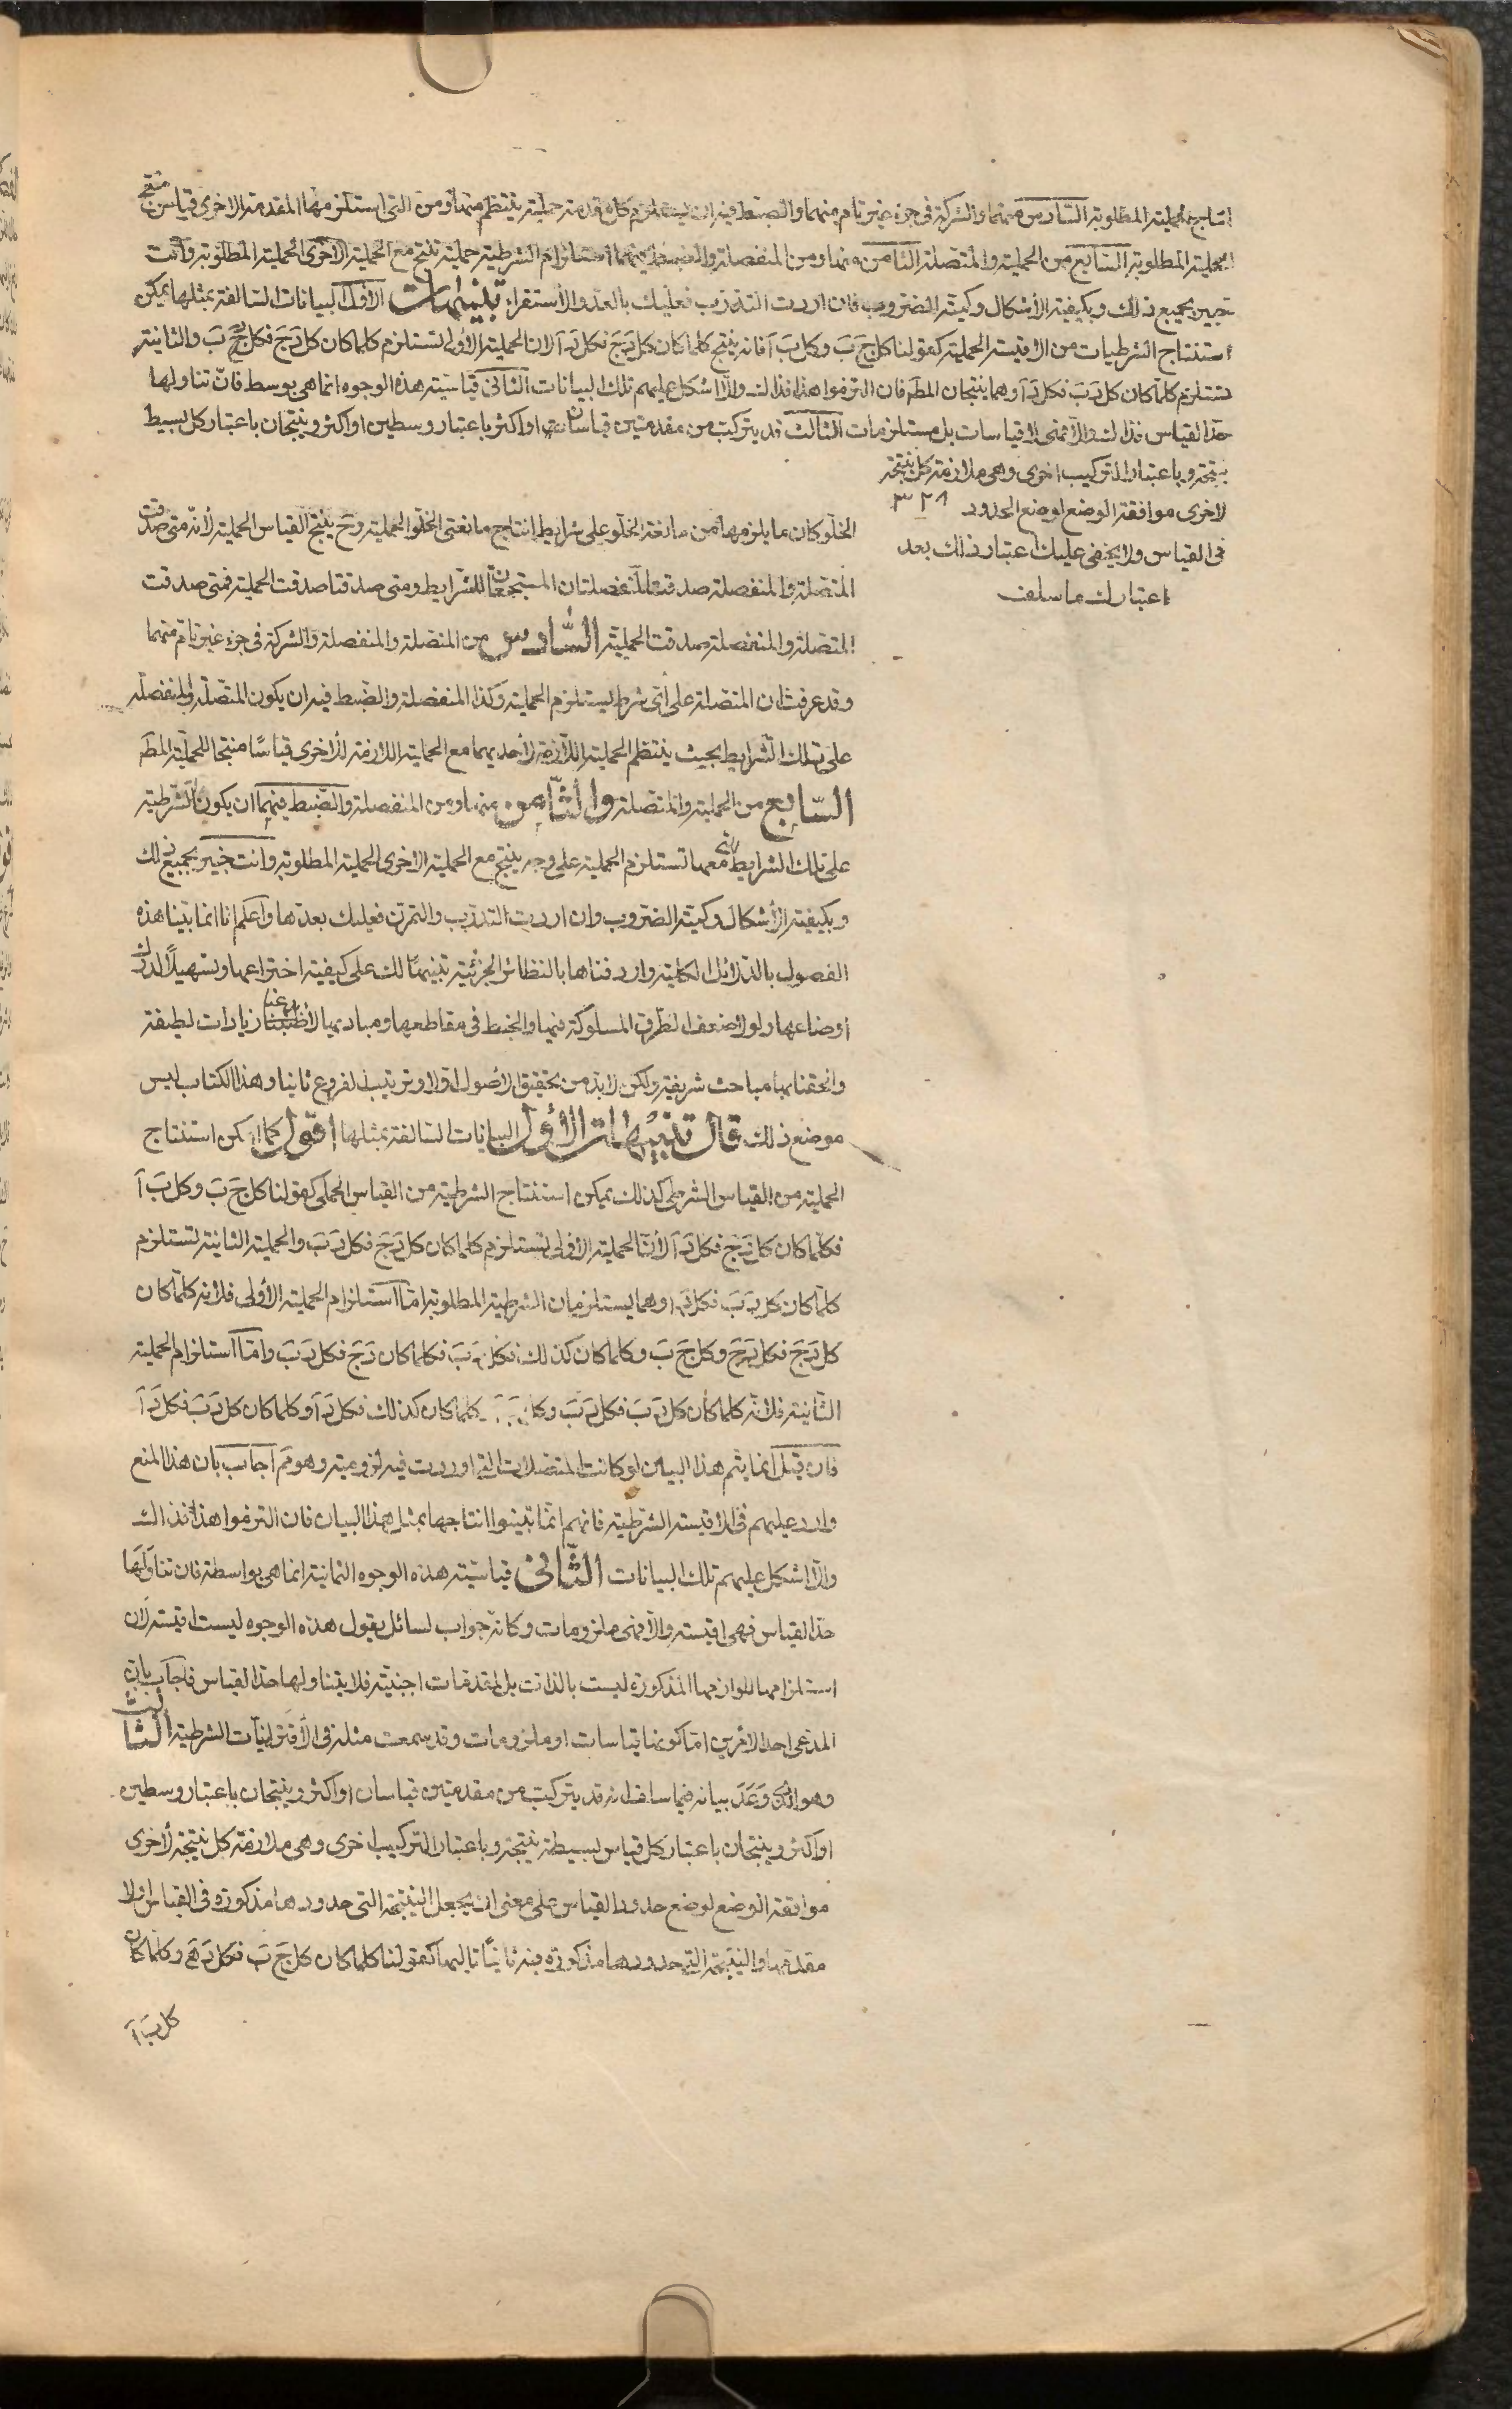 انتاج الحملية المطلوبة السادس منهما والشركة في جزء غير تام منهما والضبط فيه ان يستلزم كل مقدمة حملية ينتظم منها ومن التي استلزمها المقدمة الاخرى قياس منتج
للحملية المطلوبة السابع من الحملية والمتصلة الثامن منها ومن المنفصلة والضبط فيهما استلزام الشرطية حملية تنتج مع الحملية الاخرى الحملية المطلوبة وانت
خبير بجميع ذلك وبكيفية الاشكال وكمية الضروب فان اردت التدرب فعليك بالعد والاستقراء تنبيهات الاول البيانات السالفة بمثلها يمكن
استنتاج الشرطيات من الاقيسة الحملية كقولنا كل ج ب وكل ب ا فانه ينتج كلما كان كل د ج فكل د ا لان الحملية الاولى تستلزم كلما كان كل د ج فكل د ب والثانية
تستلزم كلما كان كل د ب فكل د ا وهما ينتجان المط فان التزموا هذا فذاك والا اشكل عليهم تلك البيانات الثاني قياسية هذه الوجوه انما هي بوسط فان تناولها
حد القياس فذاك والا فهي لا قياسات بل مستلزمات الثالث قد يتركب من مقدمتين قياسان او اكثر باعتبار وسطين او اكثر وينتجان باعتبار كل بسيط
نتيجة وباعتبار التركيب اخرى وهي ملازمة كل نتيجة
لاخرى موافقة الوضع لوضع الحدود
في القياس ولا يخفى عليك اعتبار ذلك بعد
اعتبارك ما سلف
الخلو كان ما يلزمها من مانعة الخلو على شرايط انتاج مانعتي الخلو الحملية وح ينتج القياس الحملية لانه متى صدقت
المتصلة والمنفصلة صدقت المنفصلتان المستجمعتان للشرايط ومتى صدقتا صدقت الحملية فمتى صدقت
المتصلة والمنفصلة صدقت الحملية السادس من المتصلة والمنفصلة والشركة في جزء غير تام منهما
وقد عرفت ان المتصلة على اى شرط يستلزم الحملية وكذا المنفصلة والضبط فيه ان يكون المتصلة والمنفصلة
على تلك الشرايط بحيث ينتظم الحملية اللازمة لاحديهما مع الحملية اللازمة للاخرى قياسًا منتجا للحملية المط
السابع من الحملية والمتصلة والثامن منها ومن المنفصلة والضبط فيهما ان يكون الشرطية
على تلك الشرايط التي معها تستلزم الحملية على وجه ينتج مع الحملية الاخرى الحملية المطلوبة وانت خبير بجميع ذلك
وبكيفية الاشكال وكمية الضروب وان اردت التدرب والتمرن فعليك بعدها واعلم انا انما بينا هذه
الفصول بالدلائل الكلية واردفناها بالنظائر الجزئية تنبيهًا لك على كيفية اختراعها وتسهيلا لدرك
اوضاعها ولولا ضعف الطرق المسلوكة فيها والخبط في مقاطعها ومباديها لاطنبنا زيادات لطيفة
والحقنا بها مباحث شريفة ولكن لا بد من تحقيق الاصول اولا وترتيب الفروع ثانيا وهذا الكتاب ليس
موضع ذلك قال تنبيهات الاول البيانات السالفة بمثلها اقول كما امكن استنتاج
الحملية من القياس الشرطي كذلك يمكن استنتاج الشرطية من القياس الحملي كقولنا كل ج ب وكل ب ا
فكلما كان كل د ج فكل د ا لان الحملية الاولى تستلزم كلما كان كل د ج فكل د ب والحملية الثانية تستلزم
كلما كان كل د ب فكل د ا وهما يستلزمان الشرطية المطلوبة اما استلزام الحملية الاولى فلانه كلما كان
كل د ج فكل د ج وكل ج ب وكلما كان كذلك فكل د ب فكلما كان د ج فكل د ب واما استلزام الحملية
الثانية فلانه كلما كان كل د ب فكل د ب وكل كلما كان كذلك فكل د ا وكلما كان كل د ب فكل د ا
فان قيل انما يتم هذا البيان لو كانت المتصلات التي اوردت فيه لزومية وهو مم اجاب بان هذا المنع
وارد عليهم في الاقيسة الشرطية فانهم انما تبينوا انتاجها بمثل هذا البيان فان التزموا هذا فذاك
والا اشكل عليهم تلك البيانات الثاني قياسية هذه الوجوه الثمانية انما هي بواسطة فان تناولها
حد القياس فهي اقيسة والا فهي ملزومات وكانه جواب لسائل يقول هذه الوجوه ليست اقيسة لان
استلزامها للوازمها المذكورة ليست بالذات بل لمقدمات اجنبية فلا يتناولها حد القياس فاجاب بان
المدعى احد الامرين اما كونها قياسات او ملزومات وقد سمعت مثله في الاقترانيات الشرطية الثالث
وهو الذي وعد بيانه فيما سلف انه قد يتركب من مقدمتين قياسان او اكثر وينتجان باعتبار وسطين
او اكثر وينتجان باعتبار كل قياس بسيط نتيجة وباعتبار التركيب اخرى وهي ملازمة كل نتيجة لاخرى
موافقة الوضع لوضع حدود القياس على معنى ان يجعل النتيجة التي حدودها مذكورة في القياس اولا
مقدمها والنتيجة التي حدودها مذكورة فيه ثانيًا تاليها كقولنا كلما كان كل ج ب فكل د ه وكلما كان
كل ب ا